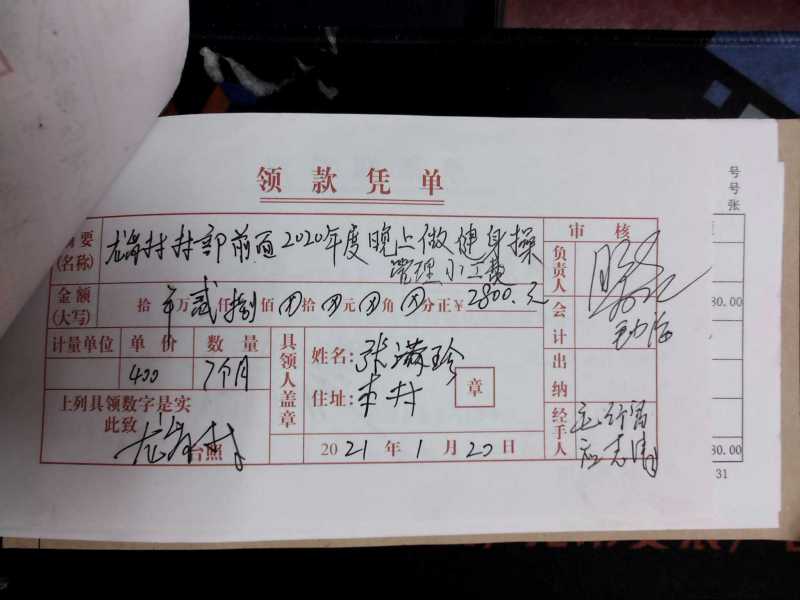 领款凭单
号
号
张
摘要
(名称)
村村部前面2020年度晚上做健身操
管理小工费
审核
负责人
金额
(大写)
拾万贰仟捌佰⊗拾⊗元⊗角⊗分正￥2800.元
会计
80.00
计量单位 单价 数量
400 7个月
具领人盖章
姓名:张满珍
住址:本村
章
出纳
上列具领数字是实
此致
台照
2021年1月20日
经手人
80.00
31